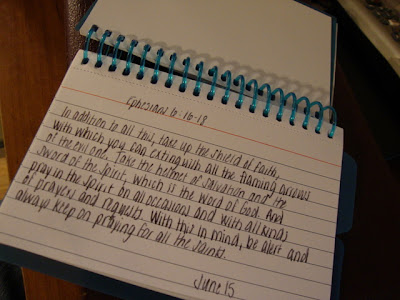 Ephesians 6:16-18
In addition to all this, take up the shield of faith,
with which you can extinguish all the flaming arrows
of the evil one. Take the helmet of salvation and the
sword of the Spirit, which is the word of God. And
pray in the Spirit on all occasions and with all kinds
of prayers and requests. With this in mind, be alert and
always keep on praying for all the saints.
June 15